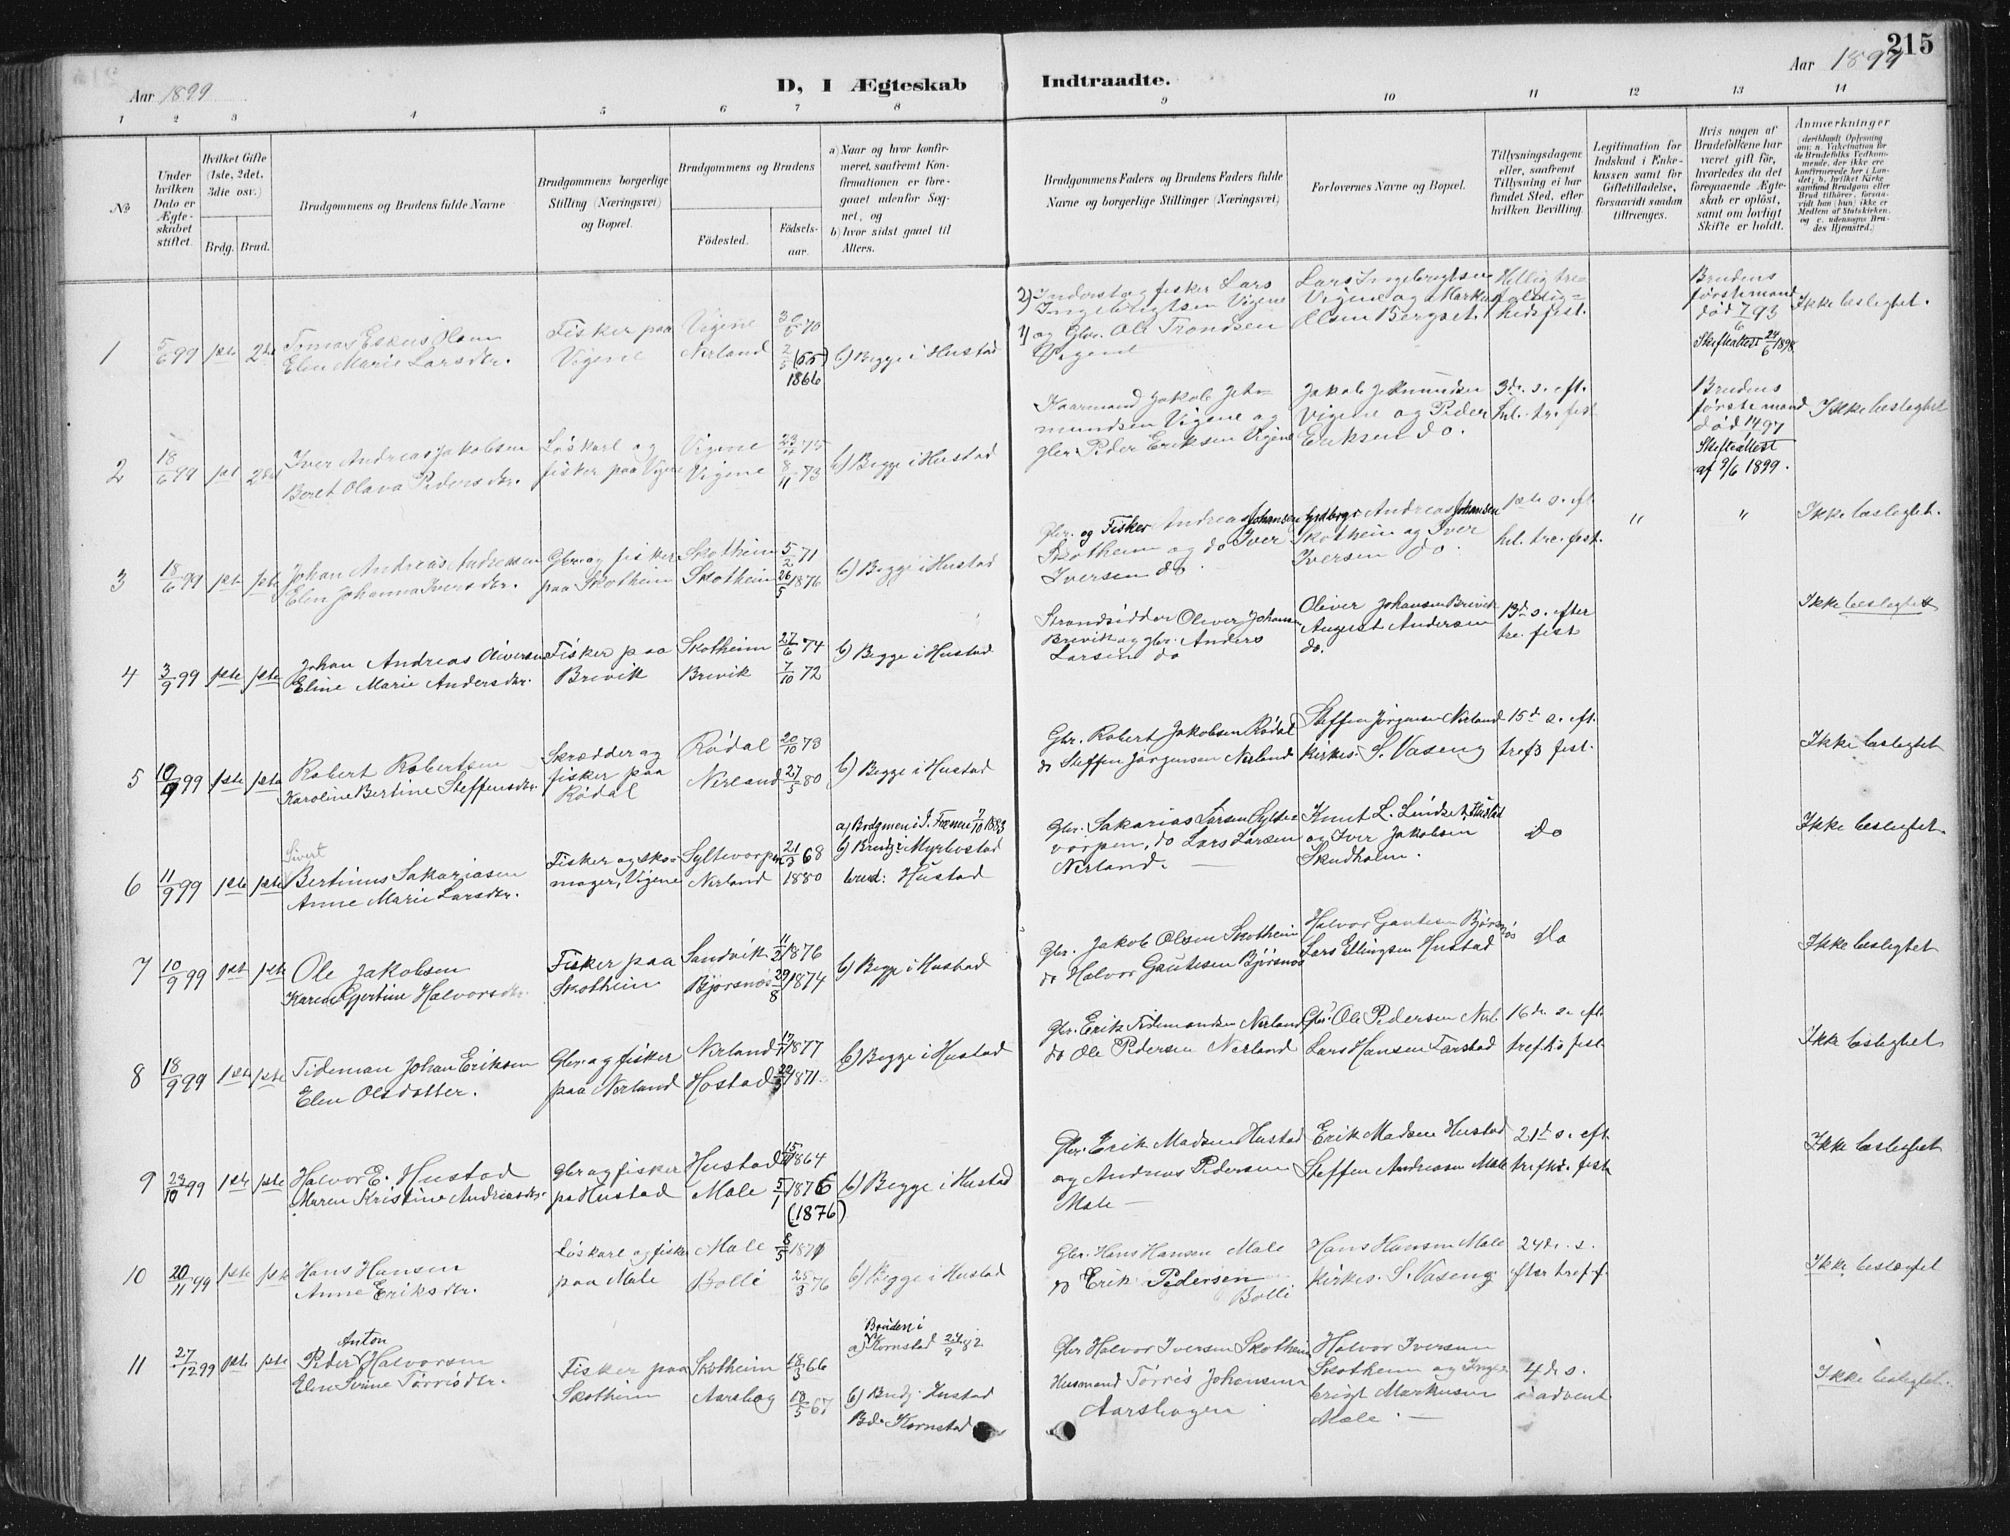 215
Aar 1899
D, I Ægteskab
Indtraadte.
Aar 1899
1 2 3 4 5 6 7 8 9 10 11 12 13 14
№
Under
hvilken
Dato er
Ægte-
skabet
stiftet.
Hvilket Gifte
(1ste, 2det,
3die osv.)
Brdg. Brud.
Brudgommens og Brudens fulde Navne
Brudgommens borgerlige
Stilling (Næringsvei)
og Bopæl.
Brudgommens og Brudens
Fødested.
Fødsels-
aar.
a) Naar og hvor konfir-
meret, saafremt Kon-
firmationen er fore-
gaaet udenfor Sog-
net, og
b) hvor sidst gaaet til
Alters.
Brudgommens Faders og Brudens Faders fulde
Navne og borgerlige Stillinger (Næringsvei)
Forlovernes Navne og Bopæl.
Tillysningsdagene
eller, saafremt
Tillysning ei har
fundet Sted, efter
hvilken Bevilling.
Legitimation for
Indskud i Enke-
kassen samt for
Giftetilladelse,
forsaavidt saadan
tiltrænges.
Hvis nogen af
Brudefolkene har
været gift før,
hvorledes da det
foregaaende Ægte-
skab er opløst,
samt om lovligt
Skifte er holdt.
Anmærkninger
(deriblandt Oplysning
om: a. Vakcination for
de Brudefolks Vedkom-
mende, der ikke ere
konfirmerede her i Lan-
det; b. hvilket Kirke-
samfund Brudgom eller
Brud tilhører, forsaa-
vidt han (hun) ikke er
Medlem af Statskirken,
og c. udensogns Bru-
des Hjemsted.)
1 5/6 99 1ste 2de
Olsen
Elen Marie Larsdtr.
Fisker paa
Vigene
Vigene
Nerland
30/5 70
(65)
1866
b) Begge i Hustad
2) Inderst og fisker Lars
Ingebrigtsen Vigene
1) og Gbr. Ole Trondsen
Vigene
Lars Ingebrigtsen
Vigene og Markus
Olsen Bergset.
Hellig tre-
foldig-
heds fest.
Brudens
første mand
død 7/6 93
Skifteattest 24/6 1898
Ikke beslegtet.
2 18/6 99 1st 2det
Iver Andreas Jakobsen
Beret Olava Pedersdtr.
Løskarl og
fisker paa Vigene
Vigene
Vigene
23/11 75
8/11 73
b) Begge i Hustad
Kaarmand Jakob Jet-
mundsen Vigene og
gbr. Peder Eriksen Vigene
Jakob Jetmundsen
Vigene og Peder
Eriksen do.
3de s. eft.
hel. tre. fest
Brudens
første mand
død 14/1 97
Skifteattest
af 9/6 1899.
Ikke beslegtet
3 18/6 99 1ste 1ste
Johan Andreas Andreassen
Elen Johanna Iversdtr.
Gbr. og fisker
paa Skotheim
Skotheim
Skotheim
5/2 71
26/5 1876
b) Begge i Hustad
Gbr. og Fisker Andreas Johansen
Skotheim og do Iver
Iversen do
Gardbrgr Andreas Johansen
Skotheim og Iver
Iversen do.
1ste s. eft.
hel. tre. fest.
" "
Ikke beslegtet.
4 3/9 99 1ste 1ste
Johan Andreas Oliversen
Eline Marie Andersdtr.
Fisker paa
Brevik
Skotheim
Brevik
27/6 74
7/10 72
b) Begge i Hustad
Strandsidder Oliver Johansen
Brevik og gbr. Anders
Larsen do
Oliver Johansen Brevik
August Andersen
do.
13de s. efter
tre. fest
Ikke beslegtet
5 10/9 99 1ste 1ste
Robert Robertsen
Karoline Bertine Steffensdtr.
Skrædder og
fisker paa
Rødal
Rødal
Nerland
20/10 78
27/5 80
b) Begge i Hustad
Gbr. Robert Jakobsen Rødal
do Steffen Jørgensen Nerland
Steffen Jørgensen Nerland
Kirkes. S. Vaseng
15de s. eft.
trefs fest.
Ikke beslegtet
6 11/9 99 1ste 1ste
Sivert
Bertinus Sakariasen
Anne Marie Larsdtr.
Fisker og sko-
mager, Vigene
Syltevorpen
Nerland
21/3 68
1880
a) Brdgmen i I. Fræna 7/10 1883
b) Brudg: Myrbostad
brud: Hustad
Gbr. Sakarias Larsen Sylte-
vorpen, do Lars Larsen
Nerland.
Knut L. Lindset, Hustad
og Iver Jakobsen
Skudholm.
do
Ikke beslegtet.
7 10/9 99 1ste 1ste
Ole Jakobsen
Karen Gjertine Halvorsdtr.
Fisker paa
Skotheim
Sandvik
Bjørsnøs
11/2 1876
29/8 1874
b) Begge i Hustad
Gbr. Jakob Olsen Skotheim
do Halvor Gautesen Bjørsnøs
Halvor Gautesen Bjørsnøs
Lars Ellingsen Hustad
do
Ikke beslegtet
8 18/9 99 1ste 1ste
Tideman Johan Eriksen
Elen Olsdatter.
Gbr. og fisker
paa Nerland
Nerland
Hostad
1877
1871
b) Begge i Hustad
Gbr. Erik Tidemandsen Nerland
do Ole Pedersen Nerland
Gbr. Ole Pedersen Nerl.
Lars Hansen Farstad
16de s. eft.
trefh.s fest
Ikke beslegtet
9 23/10 99 1ste 1ste
Halvor E. Hustad
Maren Kristine Andreasdtr.
Gbr og fisker
pa Hustad
Hustad
Male
1864
5/1 1876
(1876)
b) Begge i Hustad
Gbr. Erik Madsen Hustad
og Andreas Pedersen
Male —
Erik Madsen Hustad
Steffen Andreasen Male
21de s. eft
trefh. fest
Ikke beslegtet
10 20/11 99 1ste 1ste
Hans Hansen
Anne Eriksdtr.
Løskarl og fisker
paa Male
Male
Bolli
8/5 1871
25/3 76
b) Begge i Hustad
Gbr. Hans Hansen Male
do Erik Pedersen
Bolli
Hans Hansen Male
Kirkes. S. Vaseng
24de s.
efter tref. f.
Ikke beslegtet
11 27/12 99 1ste 1ste
Anton
Peder Halvorsen
Elen Serine Tørrisdtr.
Fisker paa
Skotheim
Skotheim
Aarsbog
18/3 66
18/5 67
Bruden i
a) Kornstad 24/9 82
b) Brudg. Hustad
Bd. Kornstad
Gbr Halvor Iversen Skotheim
Husmand Tørris Johansen
Aarsbogen
Halvor Iversen
Skotheim og Inge-
brigt Markusen
Male. —
4de s.
i advent
Ikke beslegtet.